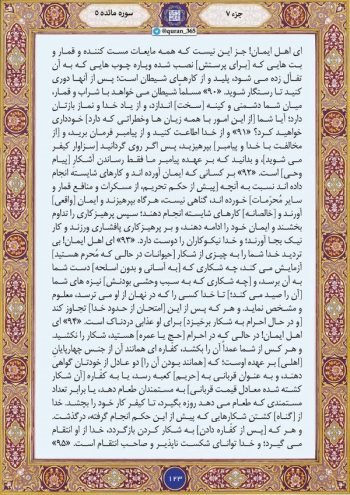 جزء ۷
@quran_365
سوره مائده ۵
ای اهل ایمان! جز این نیست که همه مایعات مست کننده و قمار و
بت هایی که [برای پرستش] نصب شده وپاره چوب هایی که به آن
تفأل زده می شود، پلید و از کارهای شیطان است؛ پس از آنها دوری
کنید تا رستگار شوید. «۹۰» مسلماً شیطان می خواهد با شراب و قمار،
میان شما دشمنی و کینه [سخت] اندازد، و از یاد خدا و نماز بازتان
دارد؛ آیا شما [از این امور با همه زیان ها وخطراتی که دارد] خودداری
خواهید کرد؟ «۹۱» و از خدا اطاعت کنید و از پیامبر فرمان برید، و [از
مخالفت با خدا و پیامبر] بپرهیزید. پس اگر روی گردانید [سزاوار کیفر
می شوید]، و بدانید که بر عهده پیامبر ما فقط رساندن آشکار [پیام
وحی] است. «۹۲» بر کسانی که ایمان آورده اند و کارهای شایسته انجام
داده اند نسبت به آنچه [پیش از حکم تحریم، از مسکرات و منافع قمار و
سایر محرّمات] خورده اند، گناهی نیست، هرگاه بپرهیزند و ایمان [واقعی]
آورند و [خالصانه] کارهای شایسته انجام دهند؛ سپس پرهیزکاری را تداوم
بخشند و ایمان خود را ادامه دهند، و بر پرهیزکاری پافشاری ورزند و کار
نیک بجا آورند؛ و خدا نیکوکاران را دوست دارد. «۹۳» ای اهل ایمان! بی
تردید خدا شما را به چیزی از شکار [حیوانات در حالی که مُحرم هستید]
آزمایش می کند، چه شکاری که [به آسانی و بدون اسلحه] دست شما
به آن برسد، و [چه شکاری که به سبب وحشی بودنش] نیزه های شما
[آن را صید می کند؛] تا خدا کسی را که در نهان از او می ترسد، معلوم
و مشخص نماید. و هر که پس از این [امتحان از حدود خدا] تجاوز کند
[و در حال احرام به شکار برخیزد] برای او عذابی دردناک است. «۹۴» ای
اهل ایمان! در حالی که در احرام [حج یا عمره] هستید، شکار را نکشید.
و هر کس از شما عمداً آن را بکشد، کفّاره ای همانند آن از جنس چهارپایان
[اهلی] بر عهده اوست؛ که [همانند بودن آن را] دو عادل از خودتان گواهی
دهند، و به عنوان قربانی به [حریم] کعبه رسد، یا به کفّاره [آن شکار
کشته شده معادل قیمت قربانی] به مستمندان طعام دهد، یا برابر تعداد
مستمندی که طعام می دهد روزه بگیرد، تا کیفر کار خود را بچشد. خدا
از [گناه] کشتن شکارهایی که پیش از این حکم انجام گرفته، درگذشت.
و هر که [پس از کفّاره دادن] به شکار کردن بازگردد، خدا از او انتقام
می گیرد؛ و خدا توانای شکست ناپذیر و صاحب انتقام است. «۹۵»
۱۲۳